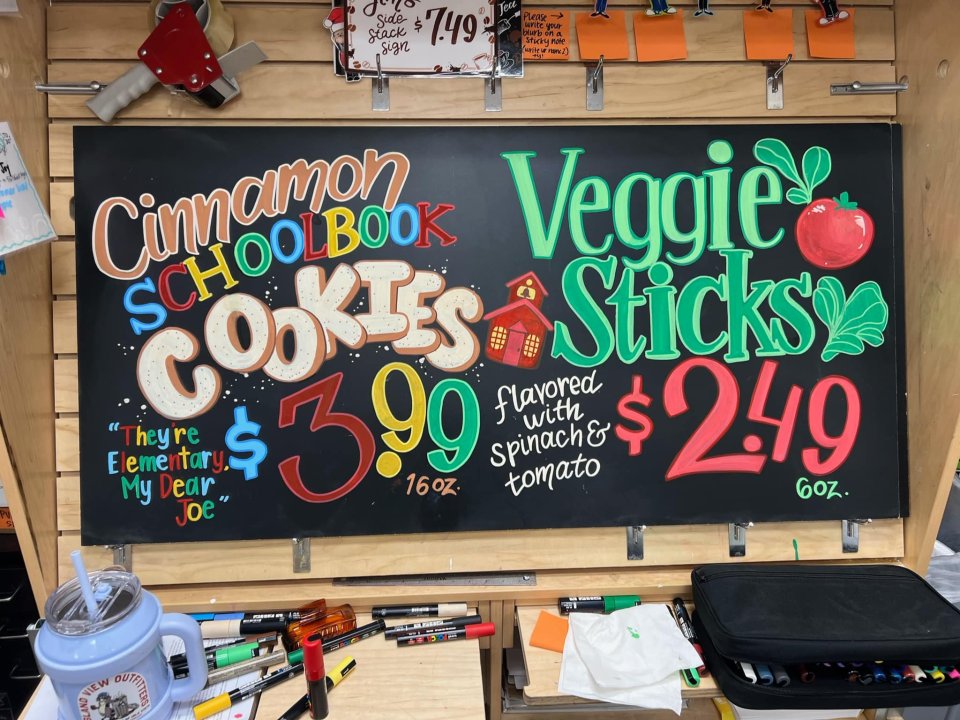 side
stack
sign
$7.49
Please →
write your
blurb on a
sticky note
Cinnamon
SCHOOLBOOK
COOKIES
"They're
Elementary,
My Dear
Joe"
$3.99
16 oz.
Veggie
Sticks
flavored
with
spinach &
tomato
$2.49
6oz.
VIEW OUTFITTERS